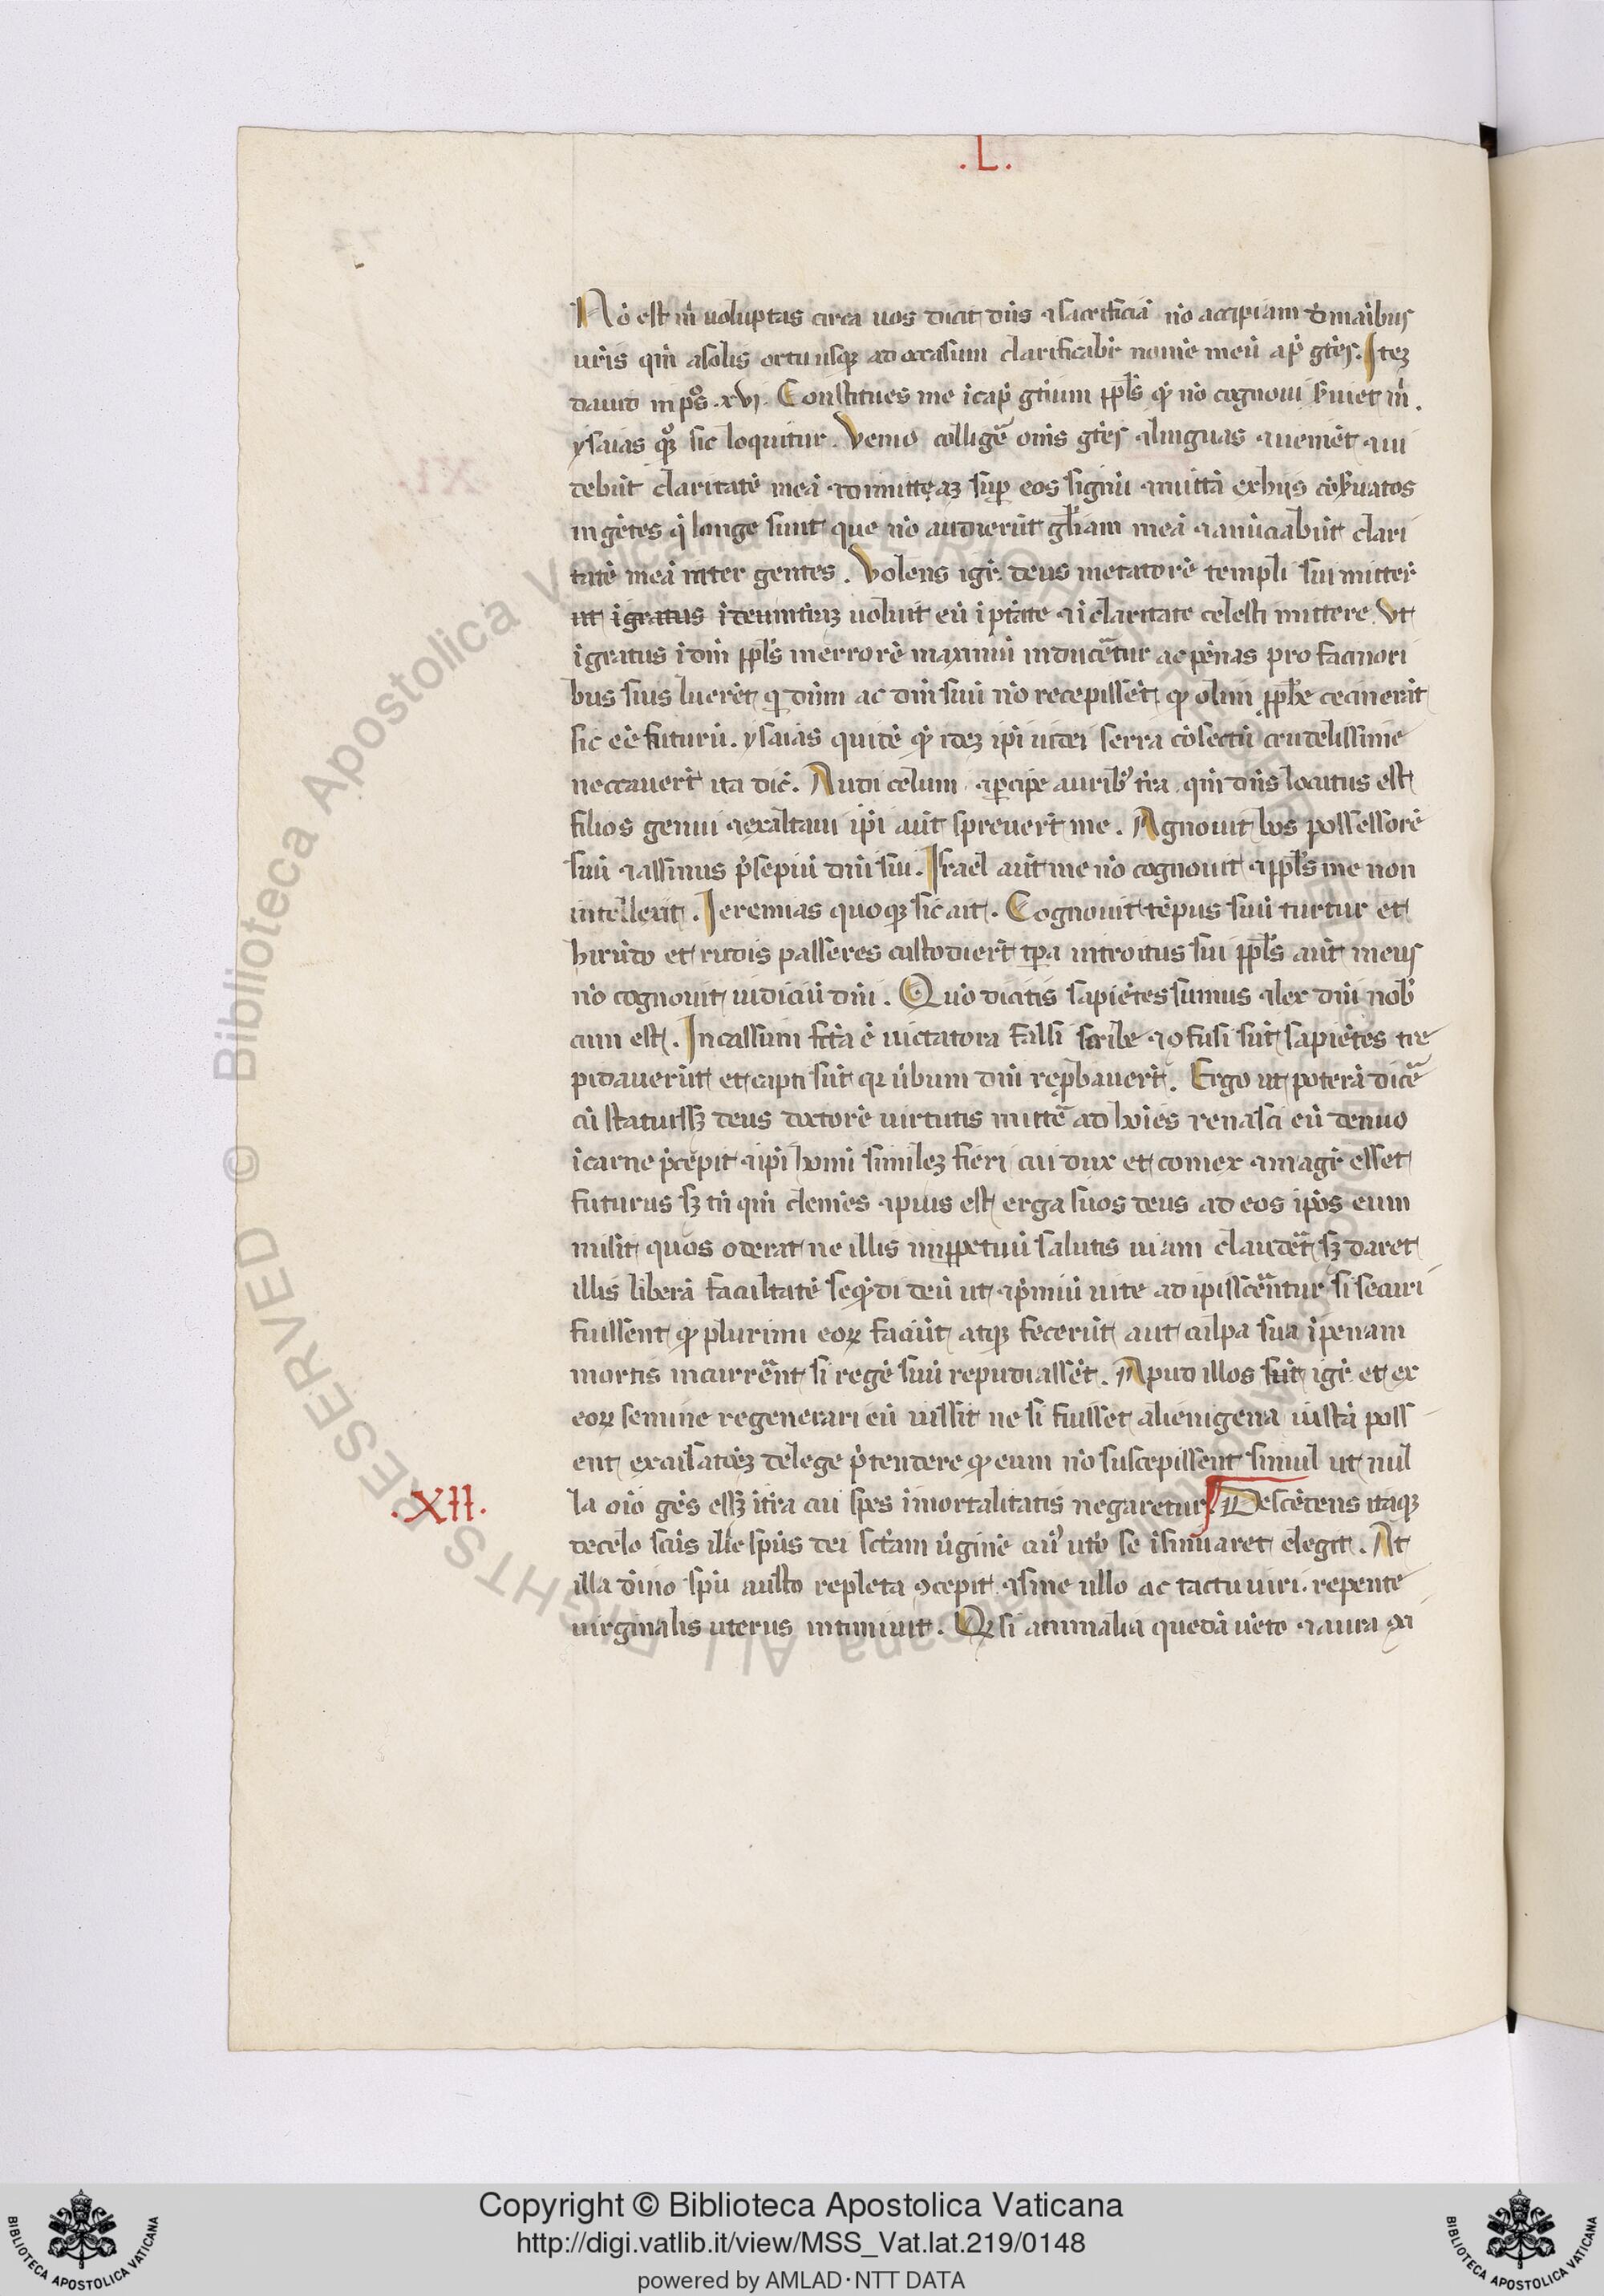 .L.
Nō est m̄ voluptas circa uos dicit dn̄s ⁊ sacrificiā nō accipiam d̄ māibus
uṙis qm̄ asolis ortu usqꝫ ad occasum clarificabr̄ nomē meū ap̄ gētes. Iteꝫ
dauid in pso. xvj. Constitues me ī cap̄ gētium ppl̄s qͥ nō cognoui s̄uiet m̄.
ysaias qꝫ sic loquitur. Venio colligē om̄s gētes ⁊ linguas ⁊ ueniēt ⁊ ui
debūt claritatē meā ⁊ dimittā sup eos signū ⁊ mittā ex hijs cōs̄uatos
in gētes q̄ longe sunt que nō audierūt gl̄iam meā ⁊ anūciabūt clari
tatē meā inter gentes. Volens igr̄ deus metatorē templi sui mitter̄
uoluit eū ī p̄tāte ⁊ ī claritate celesti mittere. Vt
īgratus ī dm̄ ppl̄s in errorē maximū inducēt̄ur ac pēnas pro facinori
bus suis luerēt qͥ dn̄m ac dm̄ suū nō recepissēt. qͩ olim ꝓphe cecinerāt
sic eē futurū. ysaias quidē qͫ ideꝫ ip̄i iudei serra cōsectū crudelissime
necauerūt ita dic̄. Audi celum ⁊ ꝑcipe aurib; tr̄a qm̄ dn̄s locutus est
filios genui ⁊ exaltaui ip̄i aūt spreuerūt me. Agnouit bos possessorē
suū ⁊ assinus p̄sepiū dn̄i sui. Israel aūt me nō cognouit ⁊ ppl̄s me non
intellexit. Jeremias quoqꝫ sic ait. Cognouit tēpus suū turtur et
hirūdo et rudis passeres custodierūt tp̄a introitus sui ppl̄s aūt meus
nō cognouit iudiciū dn̄i. Quō dicitis sapiētes sumus ⁊ lex dn̄i nob̄
cum est. Incassum fc̄ta ē metatora falsi scribe ⁊ ꝯfusi sūt sapiētes tre
pidauerūt et capti sūt qꝛ ūbum dn̄i reꝓbauerūt. Ergo ut poterā dicē
cū statuissꝫ deus doctorē uirtutis mittē ad hoīes renasci eū denuo
ī carne p̄cepit ⁊ ip̄i homī simileꝫ fieri cui dux et comex ⁊ magr̄ esset
futurus sꝫ tn̄ qm̄ clemēs ⁊ pius est erga suos deus ad eos ip̄os eum
misit quos oderat ne illis inꝑpetuū salutis uiam claudēt sꝫ daret
illis liberā facultatē seqͫdi deū ut ⁊ p̄miū uite adipiscēn̄tur si secuti
fuissent qͩ plurimi eoꝝ faciūt atqꝫ fecerūt aut culpa sua ī penam
mortis incurrēnt si regē suū repudiassēt. Apud illos sūt igr̄ et ex
eoꝝ semine regenerari eū iussit ne si fuisset alienigena iustā poss
ent excusatōeꝫ de lege p̄tendere qͩ eum nō suscepissent simul ut nul
.XII. la oīo gēs essꝫ ī tr̄a cui spes īmortalitatis negaretur. Descēdens itaqꝫ
de celo scūs ille spūs dei sctam ūginē cui; utō se īsinuaret elegit. At
illa dīno spū austo repleta ꝯcepit ⁊ sine ullo ac tactu uiri. repente
uirginalis uterus intumuit. Qͩ si animalia quedā uēto ⁊ aura ꝯci
Copyright © Biblioteca Apostolica Vaticana
http://digi.vatlib.it/view/MSS_Vat.lat.219/0148
powered by AMLAD·NTT DATA